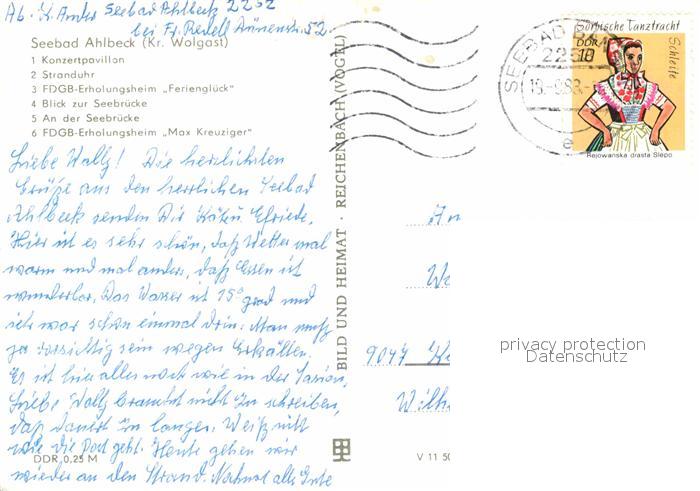 Ab. K. Seebad Ahlbeck 2252
bei Fr. 52.
Seebad Ahlbeck (Kr. Wolgast)
1 Konzertpavillon
2 Stranduhr
3 FDGB-Erholungsheim „Ferienglück“
4 Blick zur Seebrücke
5 An der Seebrücke
6 FDGB-Erholungsheim „Max Kreuziger“
Liebe Wally! Die herzlichsten
Grüße aus den herrlichen Seebad
Ahlbeck senden Dir Käte u Elfriede.
Hier ist es sehr schön, daß Wetter mal
warm und mal anders, daß Essen ist
wunderbar. Das Wasser ist 15° grad und
ich war schon einmal drin. Man muß
ja vorsichtig sein wegen Erkälten.
Es ist hier alles noch wie in der Saison,
Liebe Wally brauchst nicht zu schreiben,
daß dauert zu lange. Weiß nicht
wie die Post geht. Heute gehen wir
wieder an den Strand. Nochmal alles Gute
DDR 0,25 M
BILD UND HEIMAT · REICHENBACH (VOGTL)
V 11 50
SEEBAD
2252
Sorbische Tanztracht
DDR 10
Schleife
Rejowanska drasta Slepo
An
9047
Wilh
privacy protection
Datenschutz